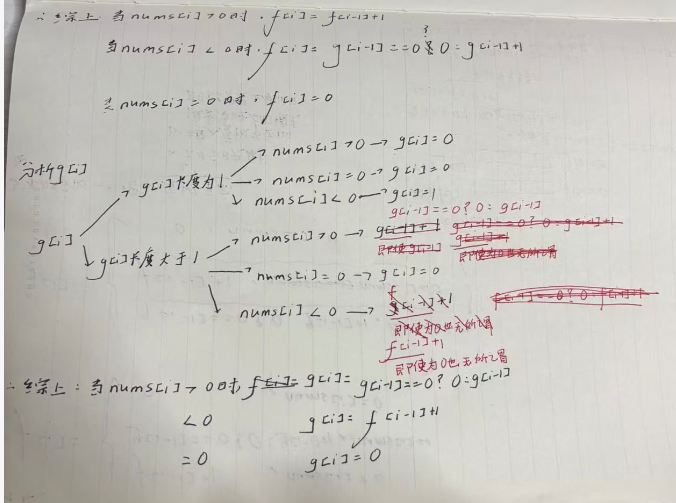 ∴综上 当nums[i]>0时. f[i]=f[i-1]+1
当nums[i]<0时. f[i]= g[i-1]==0?0:g[i-1]+1
当nums[i]=0时. f[i]=0
分析g[i]
g[i]
g[i]长度为1
nums[i]>0→g[i]=0
nums[i]=0→g[i]=0
nums[i]<0→g[i]=1
g[i-1]==0?0:g[i-1]
g[i]长度大于1
nums[i]>0→ g[i-1]+1 g[i-1]==0?0:g[i-1]+1
nums[i]=0→g[i]=0
nums[i]<0→ f[i-1]+1
即使为0也无所谓
f[i-1]+1
即使为0也无所谓
∴综上:当nums[i]>0时 f[i]= g[i]= g[i-1]==0?0:g[i-1]
<0 g[i]= f[i-1]+1
=0 g[i]=0